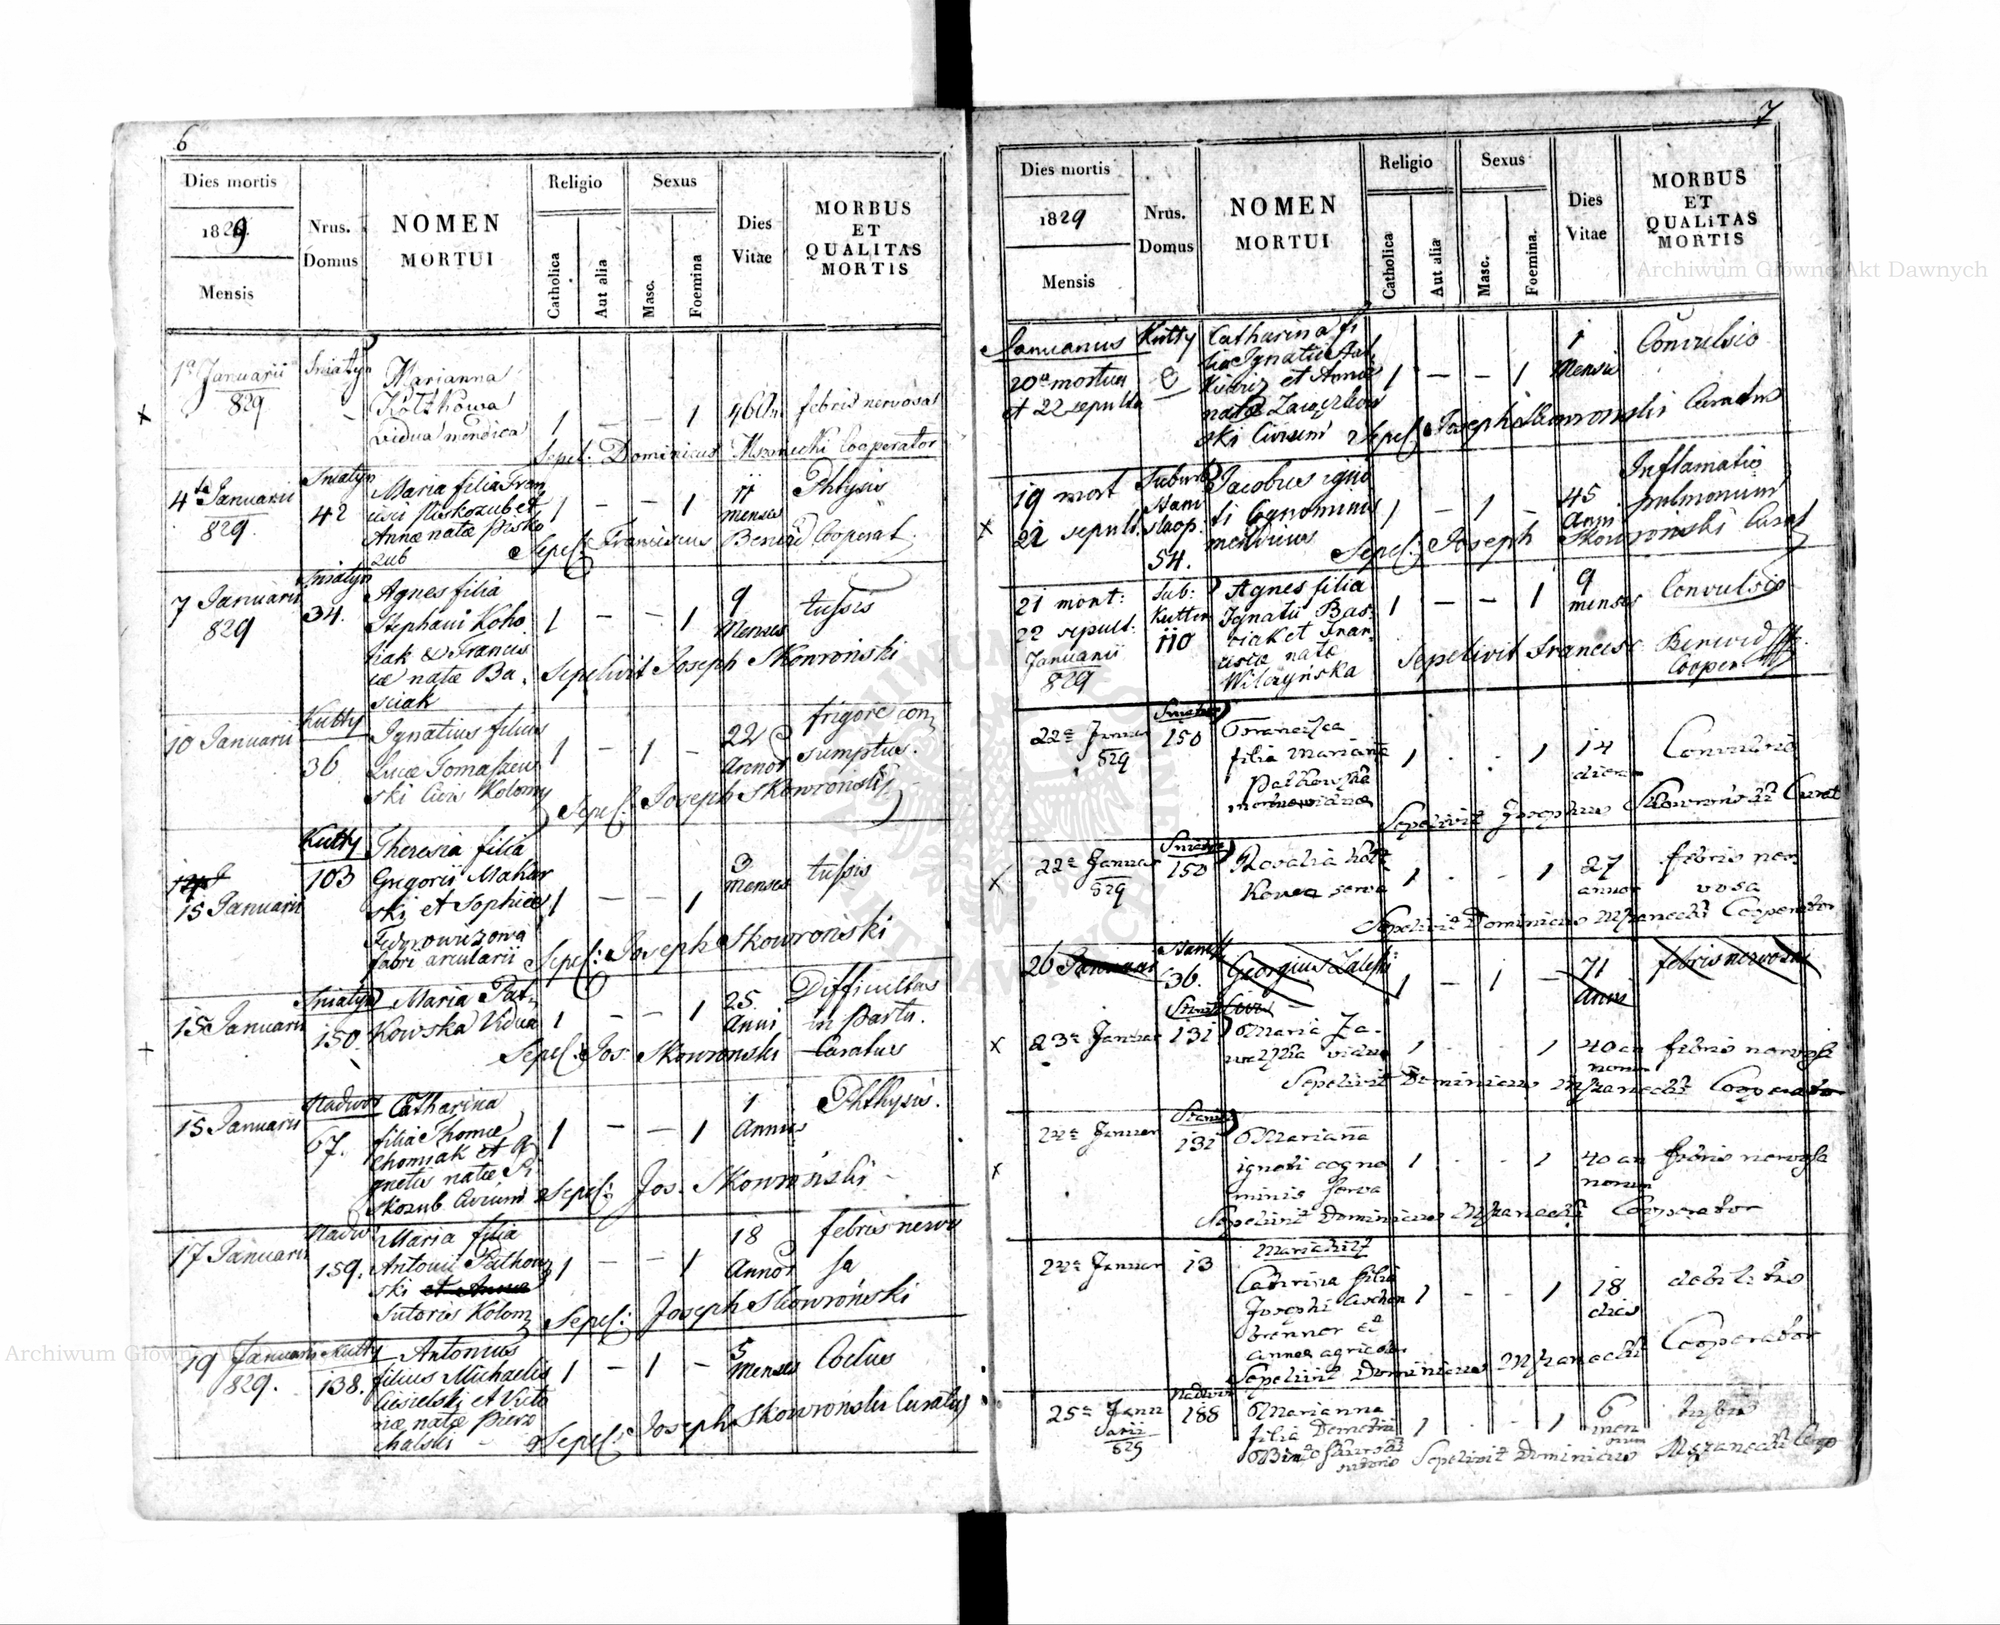 6
Dies mortis
1829
Mensis
Nrus.
Domus
NOMEN
MORTUI
Religio
Catholica
Aut alia
Sexus
Masc.
Foemina
Dies
Vitae
MORBUS
ET
QUALITAS
MORTIS
1a Januarii
829
Sniatyn
Marianna
vidua mendica
1 — — 1
febris nervosa
Sepel: Dominicus Mszanecki Cooperator
4ta Januarii
829.
Sniatyn
42
Maria filia Fran
Annæ natæ Pisko
zub
1 — — 1
11
menses
Phtysis
Sepel: Franciscus Cooperat.
7 Januarii
829
Sniatyn
34.
Agnes filia
Stephani
Francis
cæ natæ Ba
siak
1 — — 1
9
Menses
tussis
Sepelivit Joseph Skowroński
10 Januarii
Kutty
36
Ignatius filius
Lucæ Tomaszew
ski Civis Kolomy
1 — 1 —
22
Annor
frigore con
sumptus.
Sepel: Joseph Skowroński
15 Januarii
Kutty
103
Theresia filia
Gregorii
ski et Sophiæ
fabri arcularii
1 — — 1
3
menses
tussis
Sepel: Joseph Skowroński
15 Januarii
Sniatyn
150.
Maria Pat
kowska Vidua
1 — — 1
25.
Anni
Difficultas
in Partu.
Sepel: Jos: Skowronski Curatus
15 Januarii
Nadwor
67.
Catharina
filia Thomæ
Chomiak et A
gnetis natæ Pi
skozub Civium
1 — — 1
1
Annus
Phthysis.
Sepel: Jos. Skowroński
17 Januarii
Nadw
159.
Maria filia
Antonii Patkow
ski et Annæ
Sutoris Kolom
1 — — 1
18
Annor
febris nervo
sa
Sepel: Joseph Skowroński
19 Januarii
829.
Kutty
138.
Antonius
filius Michaelis
Cisielski et Victo
riæ natæ Pierz
chalski
1 — 1 —
5
Menses
Sepel: Joseph Skowronski Curatus
7
Dies mortis
1829
Mensis
Nrus.
Domus
NOMEN
MORTUI
Religio
Catholica
Aut alia
Sexus
Masc.
Foemina.
Dies
Vitae
MORBUS
ET
QUALITAS
MORTIS
Januarius
20a mortua
et 22 sepulta
Kutty
Catharina fi
lia Ignatii
et Annæ
natæ
ski Civium
1 — — 1
1
Mensis
Convulsio
Sepel: Joseph Skowronski Curatus
19 mort
21 sepult.
Suburb
Stani
slaop:
54.
Jacobus igno
ti Cognominis
mendicus
1 — 1 —
45
Anni
Inflamatio
pulmonum
Sepel: Joseph Skowronski Curat
21 mort:
22 sepult.
Januarii
829
Sub:
Kutten
110
Agnes filia
Ignatii Bas
siak et Fran
ciscæ natæ
Wilczyńska
1 — — 1
9
menses
Convulsio
Sepelivit Francisc Cooper
22a Januar
829
Sniatyn
150
Francisca
filia Marianæ
Patkowska
1 . . 1
14
dies
Convulsio
Sepelivit Josephus Skowroński Curat
22a Januar
829
Sniatyn
150
Rosalia Kotz
kowa serva
1 . . 1
27
annor
febris ner
vosa
Sepelivit Dominicus Mszanecki Cooperator
26 Januar
Stanis
36.
Georgius Zaleski
Civis
1 — 1 —
71
Anni
febris nervosa
23a Januar
131
Maria
vidua
1 . . 1
40 an
norum
febris nervosa
Sepelivit Dominicus Mszanecki Cooperator
Januar
Stanis
131
Mariana
ignoti cogno
minis serva
1 . . 1
40 an
norum
febris nervosa
Sepelivit Dominicus Mszanecki Cooperator
Januar
13
Mariahilf
Catirina filia
Josephi Aschen
brenner et
Annæ agricolar
1 . . 1
18
dies
debilitas
Sepelivit Dominicus Mszanecki Cooperator
25a Janu
arii
829
Nadwor
188
Marianna
filia Demetrii
1 . . 1
6
men
sium
tussis
Sepelivit Dominicus Mszanecki Coop
Archiwum Główne Akt Dawnych